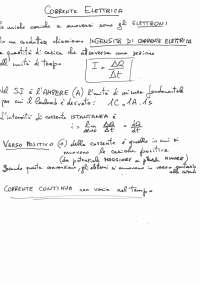 CORRENTE ELETTRICA
uniche cariche a muoversi sono gli ELETTRONI
In un conduttore chiamiamo INTENSITÀ DI CORRENTE ELETTRICA
quantità di carica che attraversa una sezione
nell'unità di tempo
I = ΔQ/Δt
Nel S.I. è l'AMPERE (A) l'unità di misura fondamentale
per cui il Coulomb è derivato: 1C = 1A · 1s
L'intensità di corrente ISTANTANEA è
i = lim Δt→0 ΔQ/Δt = dQ/dt
VERSO POSITIVO (+) della corrente è quello in cui si
muovono le cariche positive
(da potenziale MAGGIORE a quello MINORE)
questa convenzione, gli elettroni si muovono in verso contrario
alla corrente
CORRENTE CONTINUA non varia nel tempo